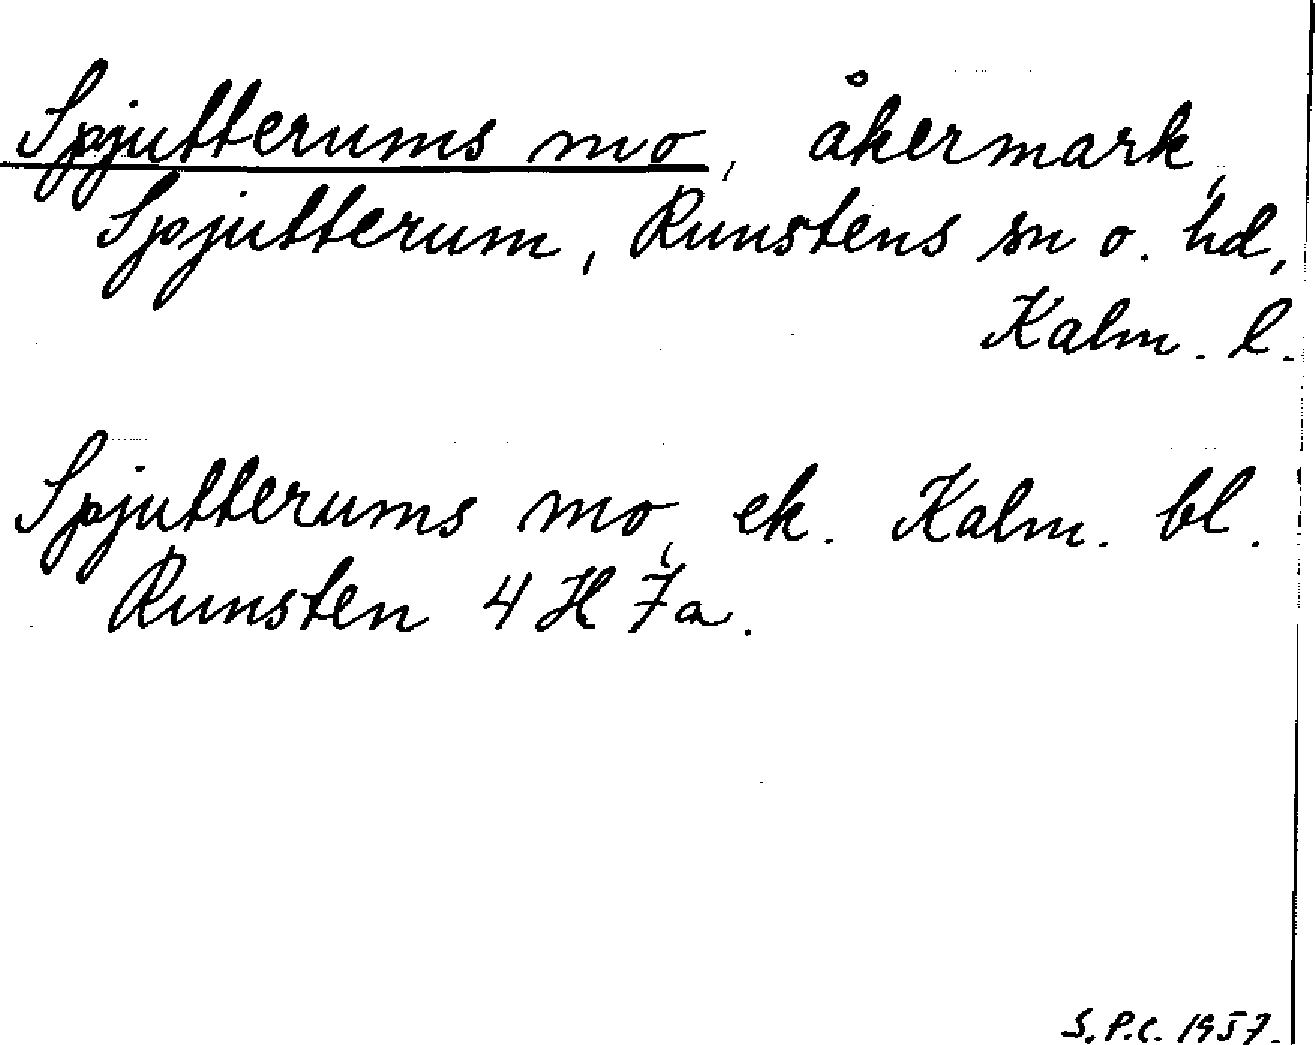 Spjutterums mo, åkermark,
Spjutterum, Runstens sn o. hd,
Kalm. l.
Spjutterums mo, ek. Kalm. bl.
Runsten 4 H 7a.
S.P.C. 1957.